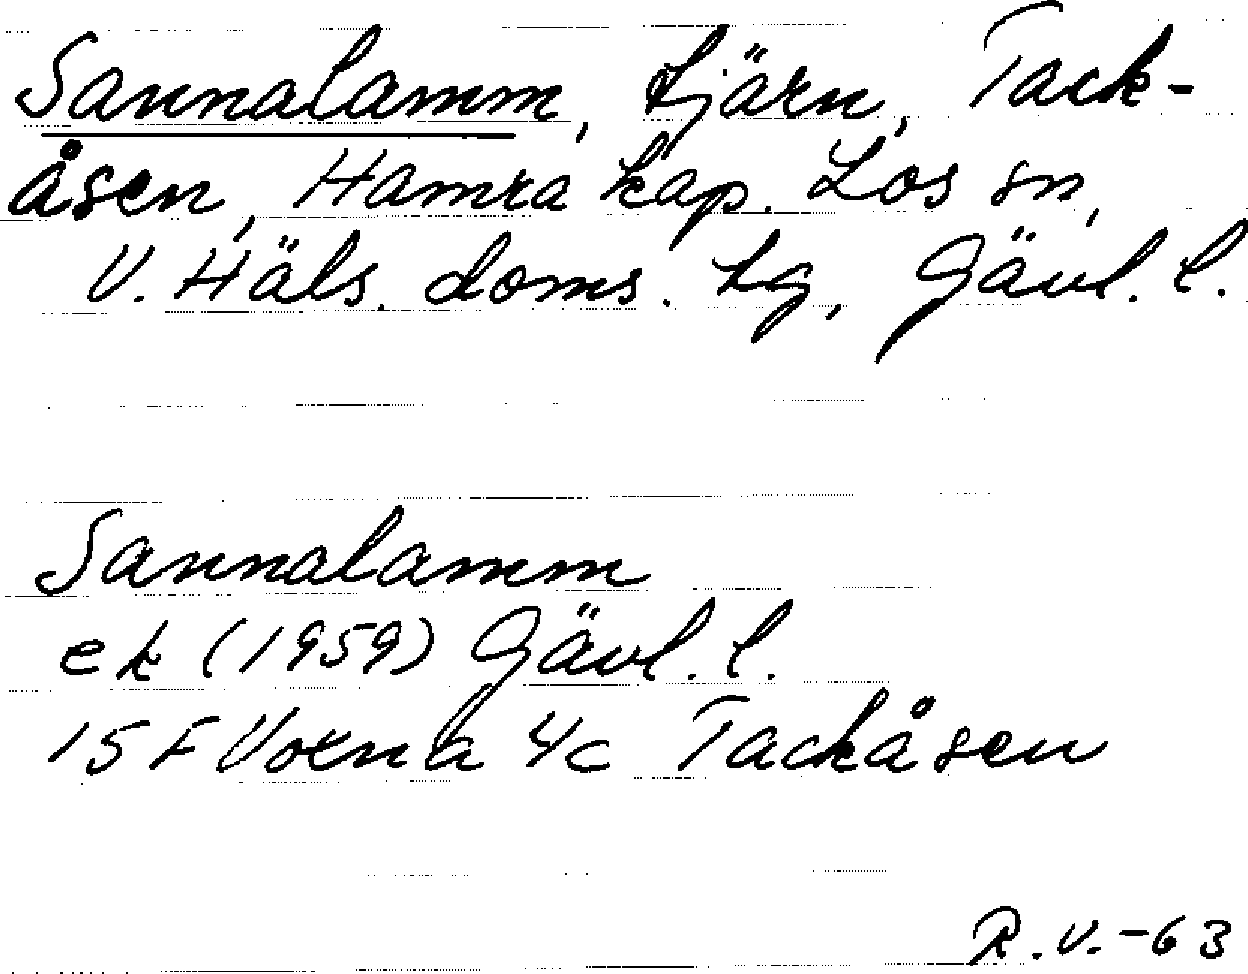 Sannalamm, tjärn, Tack-
åsen, Hamra kap. Los sn,
V. Häls. doms. tg, Gävl. l.
Sannalamm
ek (1959) Gävl. l.
15 F Voxna 4c Tackåsen
R.V.-63